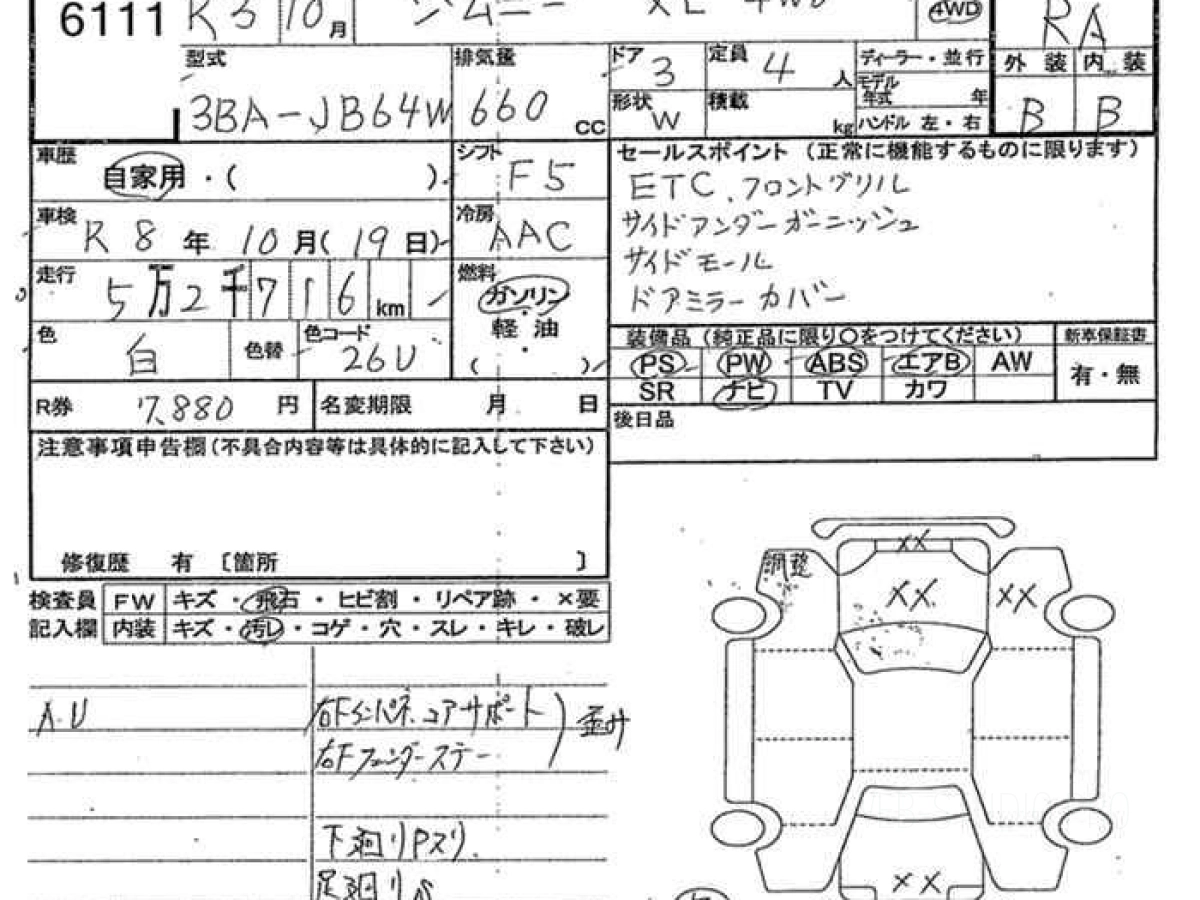 6111 R3 10月 ジムニー XL 4WD 4WD RA
型式 排気量 ドア 3 定員 4人 ディーラー・並行 外装 内装
3BA-JB64W 660 CC 形状 W 積載 kg モデル年式 年 ハンドル 左・右 B B
車歴 自家用・( ) シフト F5 セールスポイント (正常に機能するものに限ります)
ETC、フロントグリル
車検 R8年10月(19日) 冷房 AAC サイドアンダーガーニッシュ
サイドモール
走行 5万2千716km 燃料 ガソリン・軽油・( ) ドアミラーカバー
色 白 色替 色コード 26U 装備品 (純正品に限り○をつけてください) 新車保証書
PS PW ABS エアB AW 有・無
SR ナビ TV カワ
R券 7,880円 名変期限 月 日 後日品
注意事項申告欄(不具合内容等は具体的に記入して下さい)
修復歴 有 〔箇所 〕
検査員 FW キズ・飛石・ヒビ割・リペア跡・×要
記入欄 内装 キズ・汚レ・コゲ・穴・スレ・キレ・破レ
A.U 右Fインパネ、コアサポート 歪み
右Fフェンダーステー
下廻りPスリ
足廻り
調整 XX
XX
XX
XX